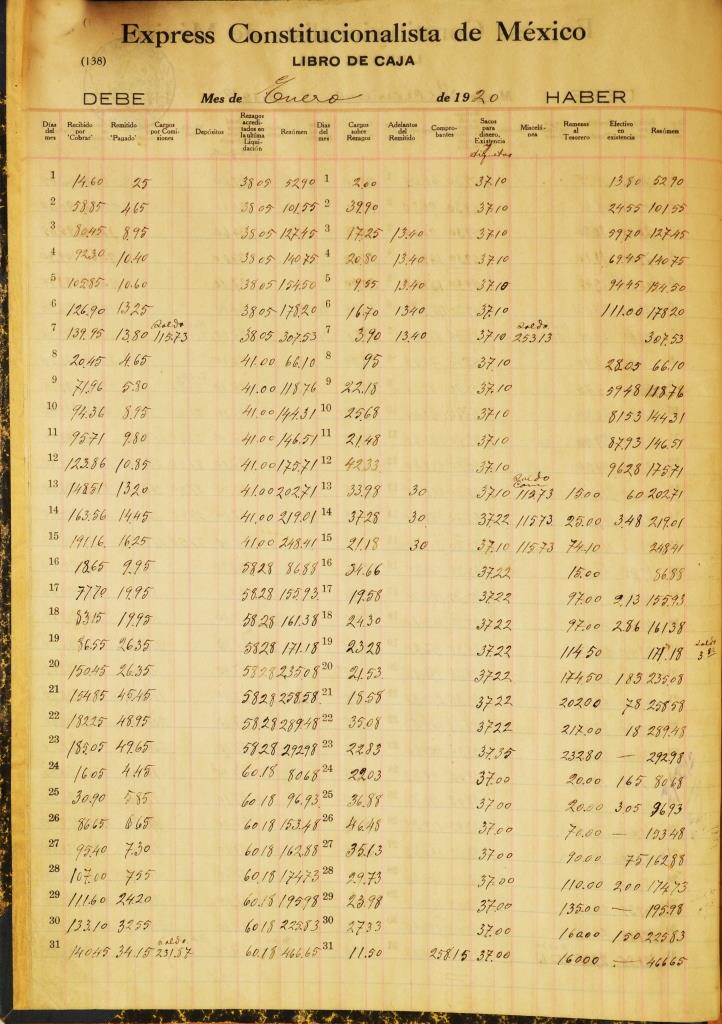 Express Constitucionalista de México
(138) LIBRO DE CAJA
DEBE Mes de Enero de 1920 HABER
Días del mes Recibido por "Cobrar" Remitido "Pagado" Cargos por Comisiones Depósitos Rezagos acreditados en la última Liquidación Resúmen Días del mes Cargos sobre Rezagos Adelantos del Remitido Comprobantes Sacos para dinero, Existencia Miscelánea Remesas al Tesorero Efectivo en existencia Resúmen
1 14.60 25 38.05 52.90 1 2.00 37.10 13.80 52.90
2 58.85 4.65 38.05 101.55 2 39.90 37.10 24.55 101.55
3 80.45 8.95 38.05 127.45 3 17.25 13.40 37.10 59.70 127.45
4 92.30 10.40 38.05 140.75 4 20.80 13.40 37.10 69.45 140.75
5 105.85 10.60 38.05 154.50 5 9.55 13.40 37.10 94.45 154.50
6 126.90 13.25 38.05 178.20 6 16.70 13.40 37.10 111.00 178.20
7 139.95 13.80 Saldo 115.73 38.05 307.53 7 3.90 13.40 37.10 Saldo 253.13 307.53
8 20.45 4.65 41.00 66.10 8 95 37.10 28.05 66.10
9 71.96 5.80 41.00 118.76 9 22.18 37.10 59.48 118.76
10 94.36 8.95 41.00 144.31 10 25.68 37.10 81.53 144.31
11 95.71 9.80 41.00 146.51 11 21.48 37.10 87.93 146.51
12 123.86 10.85 41.00 175.71 12 42.33 37.10 96.28 175.71
13 148.51 13.20 41.00 202.71 13 33.98 30 37.10 Saldo 115.73 15.00 60 202.71
14 163.56 14.45 41.00 219.01 14 37.28 30 37.22 115.73 25.00 3.48 219.01
15 191.16 16.25 41.00 248.41 15 21.18 30 37.10 115.73 74.10 248.41
16 18.65 9.95 58.28 86.88 16 34.66 37.22 15.00 86.88
17 77.70 19.95 58.28 155.93 17 19.58 37.22 97.00 2.13 155.93
18 83.15 19.95 58.28 161.38 18 24.30 37.22 97.00 2.86 161.38
19 86.55 26.35 58.28 171.18 19 23.28 37.22 114.50 171.18
20 150.45 26.35 58.28 235.08 20 21.53 37.22 174.50 1.83 235.08
21 154.85 45.45 58.28 258.58 21 18.58 37.22 202.00 78 258.58
22 182.25 48.95 58.28 289.48 22 35.08 37.22 217.00 18 289.48
23 185.05 49.65 58.28 292.98 23 22.83 37.35 232.80 — 292.98
24 16.05 4.45 60.18 80.68 24 22.03 37.00 20.00 1.65 80.68
25 30.90 5.85 60.18 96.93 25 36.88 37.00 20.00 3.05 96.93
26 86.65 6.65 60.18 153.48 26 46.48 37.00 70.00 — 153.48
27 95.40 7.30 60.18 162.88 27 35.13 37.00 90.00 75 162.88
28 107.00 7.55 60.18 174.73 28 29.73 37.00 110.00 2.00 174.73
29 111.60 24.20 60.18 195.98 29 23.98 37.00 135.00 — 195.98
30 133.10 32.55 60.18 225.83 30 27.33 37.00 160.00 1.50 225.83
31 140.45 34.15 Saldo 231.87 60.18 466.65 31 11.50 258.15 37.00 160.00 — 466.65